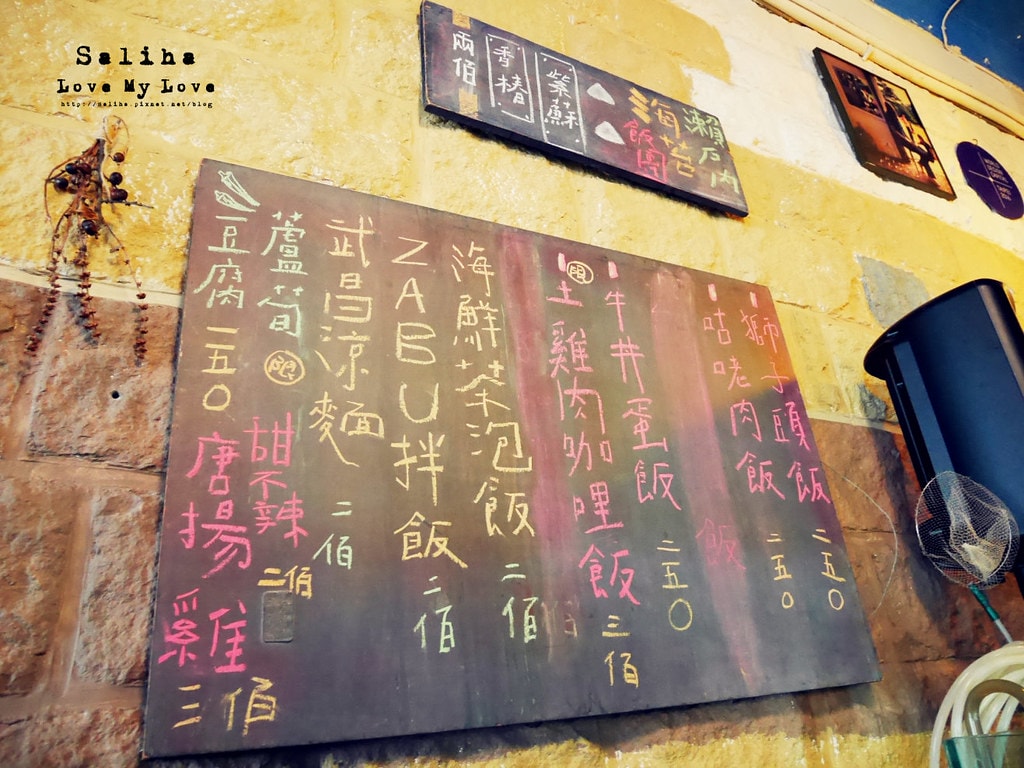 Saliha
Love My Love
http://saliha.pixnet.net/blog
瀨户内
海苔
飯團
紫蘇
香椿
兩佰
獅子頭飯 二五〇
咕咾肉飯 二五〇
飯
牛丼蛋飯 二五〇
限
土雞肉咖哩飯 三佰
海鮮茶泡飯 二佰
ZABU拌飯 二佰
武昌涼麵 二佰
蘆筍 限
豆腐 一五〇
甜不辣 二佰
唐揚雞 三佰